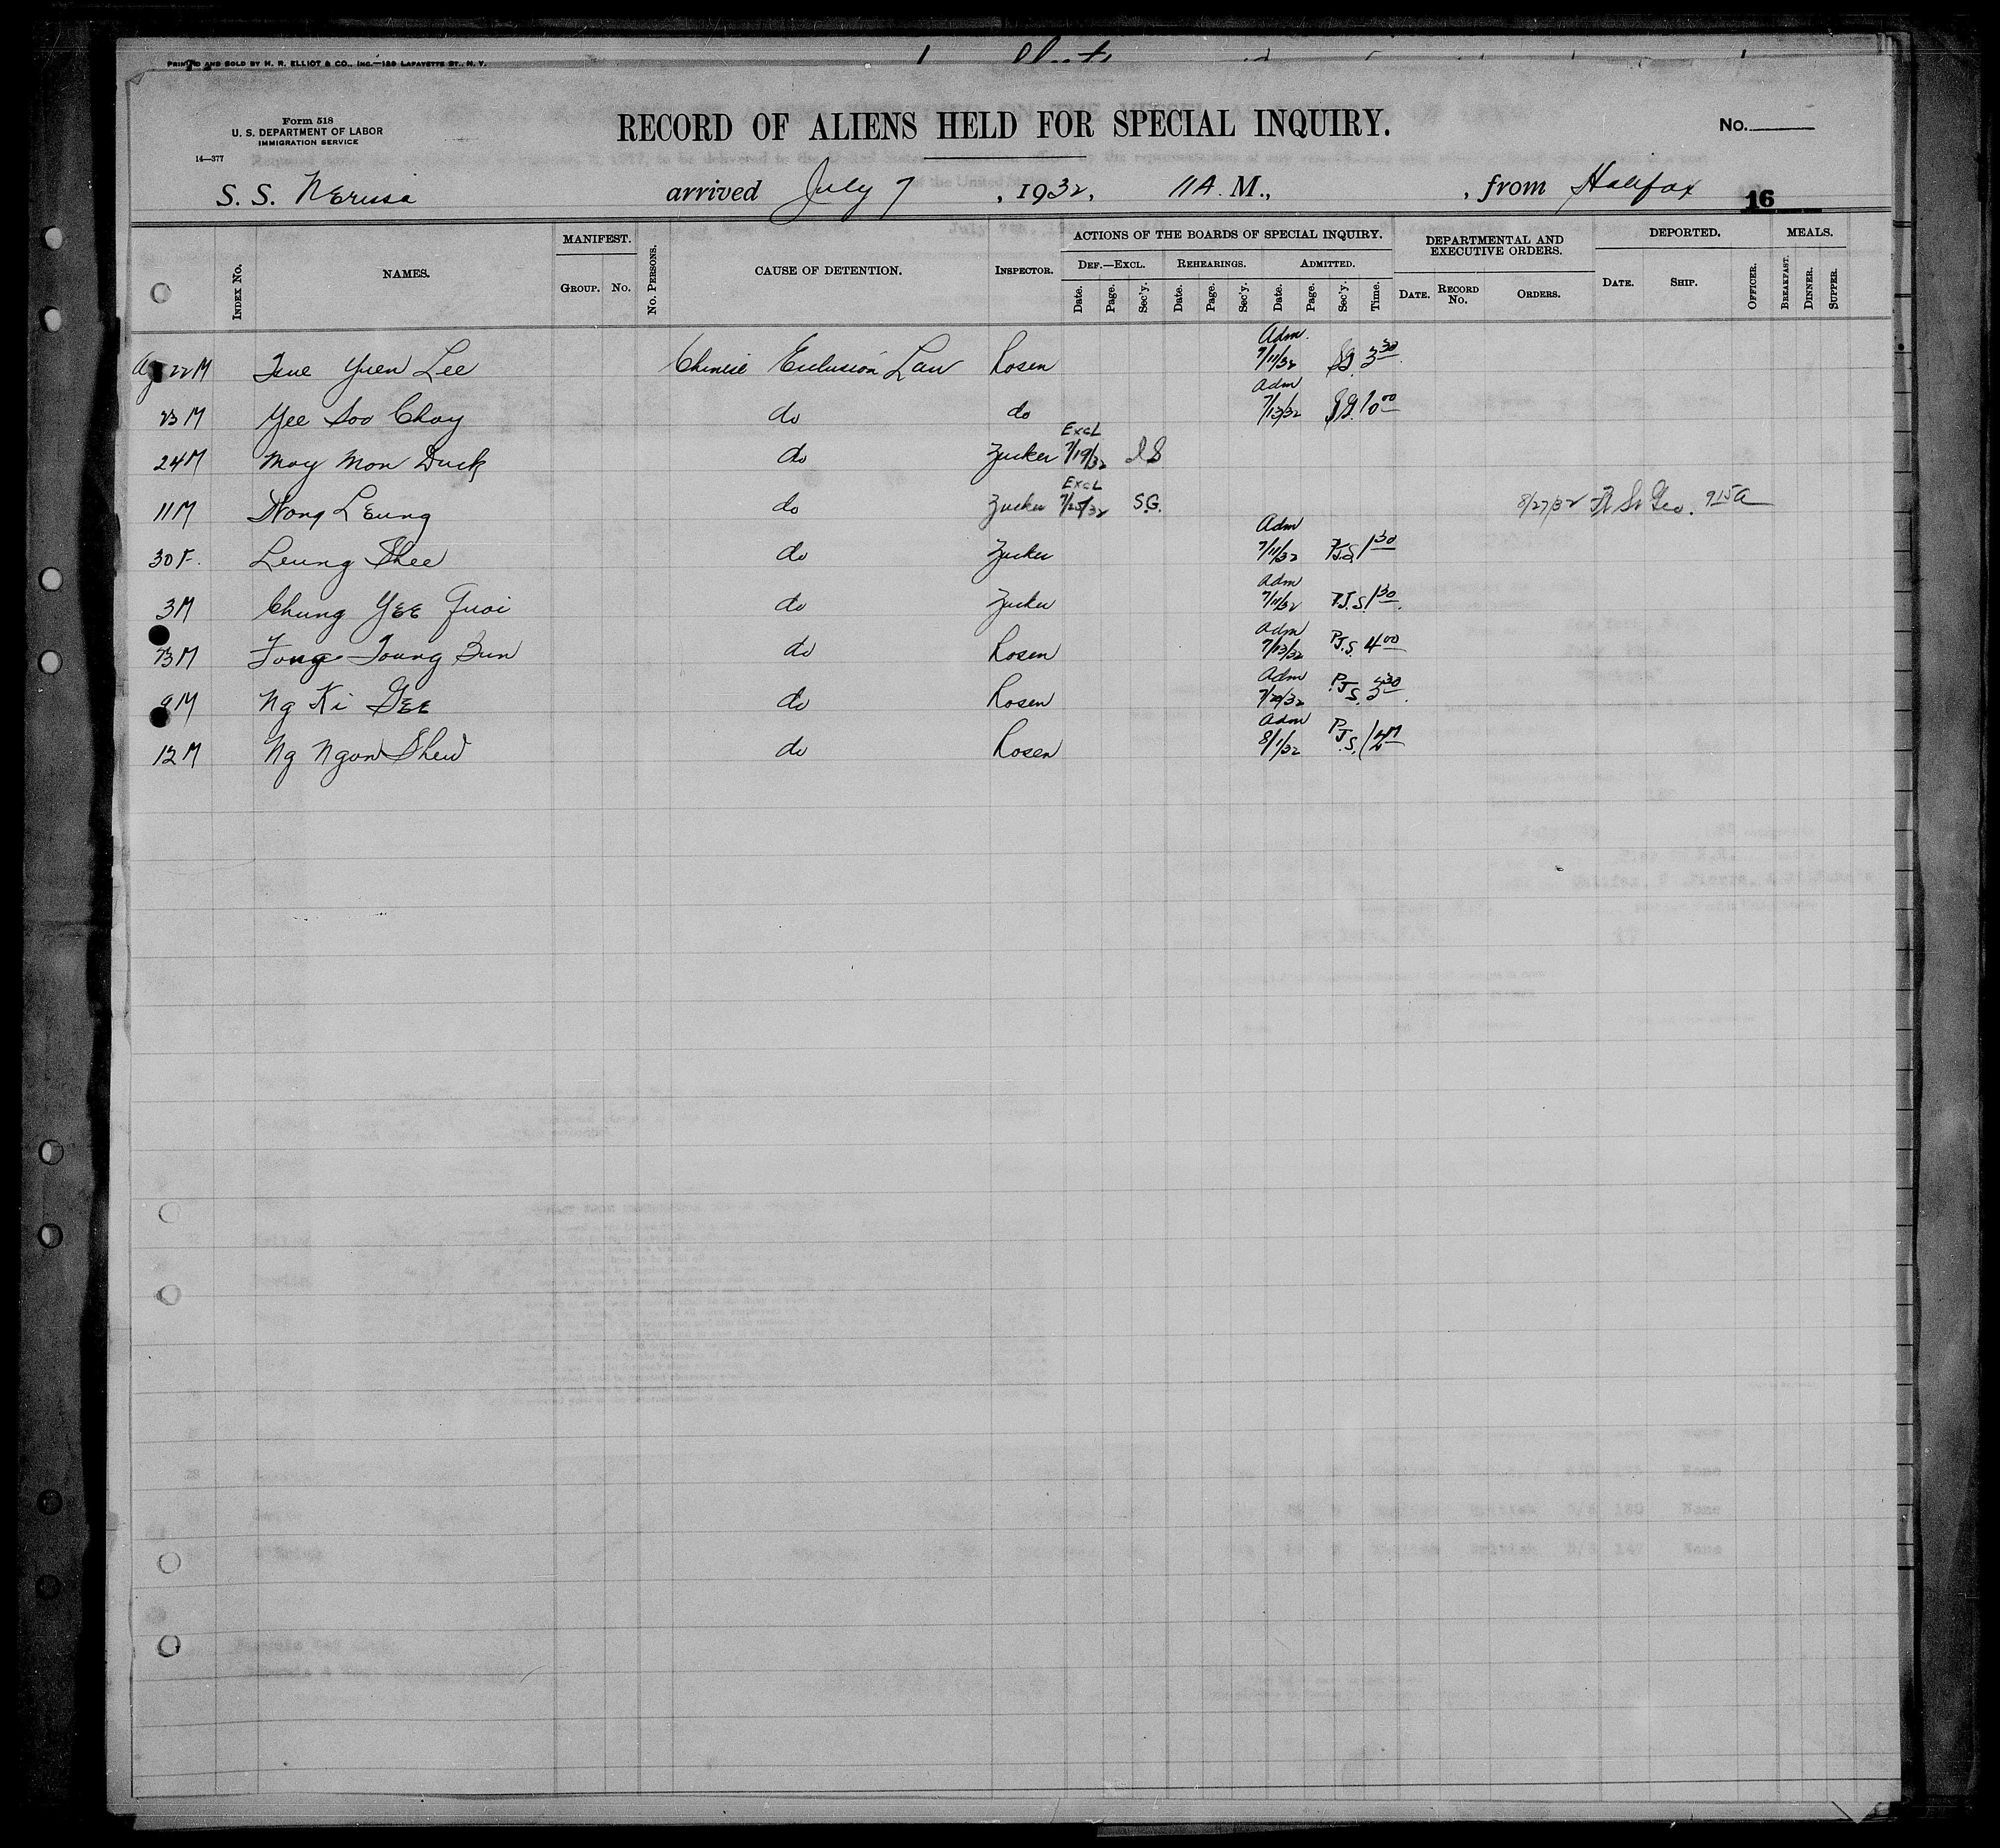 PRINTED AND SOLD BY H. R. ELLIOT & CO., INC.—129 LAFAYETTE ST., N. Y.
Form 518
U. S. DEPARTMENT OF LABOR
IMMIGRATION SERVICE
14—377
RECORD OF ALIENS HELD FOR SPECIAL INQUIRY.
No.
S. S. Nerissa arrived July 7, 1932, 11 A. M., , from Halifax
16
INDEX No. NAMES. MANIFEST. GROUP. No. No. PERSONS. CAUSE OF DETENTION. INSPECTOR. ACTIONS OF THE BOARDS OF SPECIAL INQUIRY. DEPARTMENTAL AND EXECUTIVE ORDERS. DEPORTED. MEALS.
DEF.—EXCL. REHEARINGS. ADMITTED.
Date. Page. Sec'y. Date. Page. Sec'y. Date. Page. Sec'y. Time. DATE. RECORD No. ORDERS. DATE. SHIP. OFFICER. BREAKFAST. DINNER. SUPPER.
22 M Yuen Lee Chinese Exclusion Law Rosen Adm. 7/11/32 S.G. 3 30
23 M Yee Soo Choy do do Adm 7/13/32 S.G. 10 00
24 M Moy Mon Duck do Zucker Excl 7/19/32
11 M Wong Leung do Zucker Excl 7/25/32 S.G. 8/27/32 Ft St Geo. 9 15 a
30 F. Leung Shee do Zucker Adm 7/11/32 P.J.S. 1 30
3 M Chung Yee Quoi do Zucker Adm 7/11/32 P.J.S. 1 30
23 M Fong Toung Bun do Rosen Adm 7/13/32 P.J.S. 4 00
9 M Ng Ki Gee do Rosen Adm P.J.S.
12 M Ng Ngon Shew do Rosen Adm 8/1/32 P.J.S.